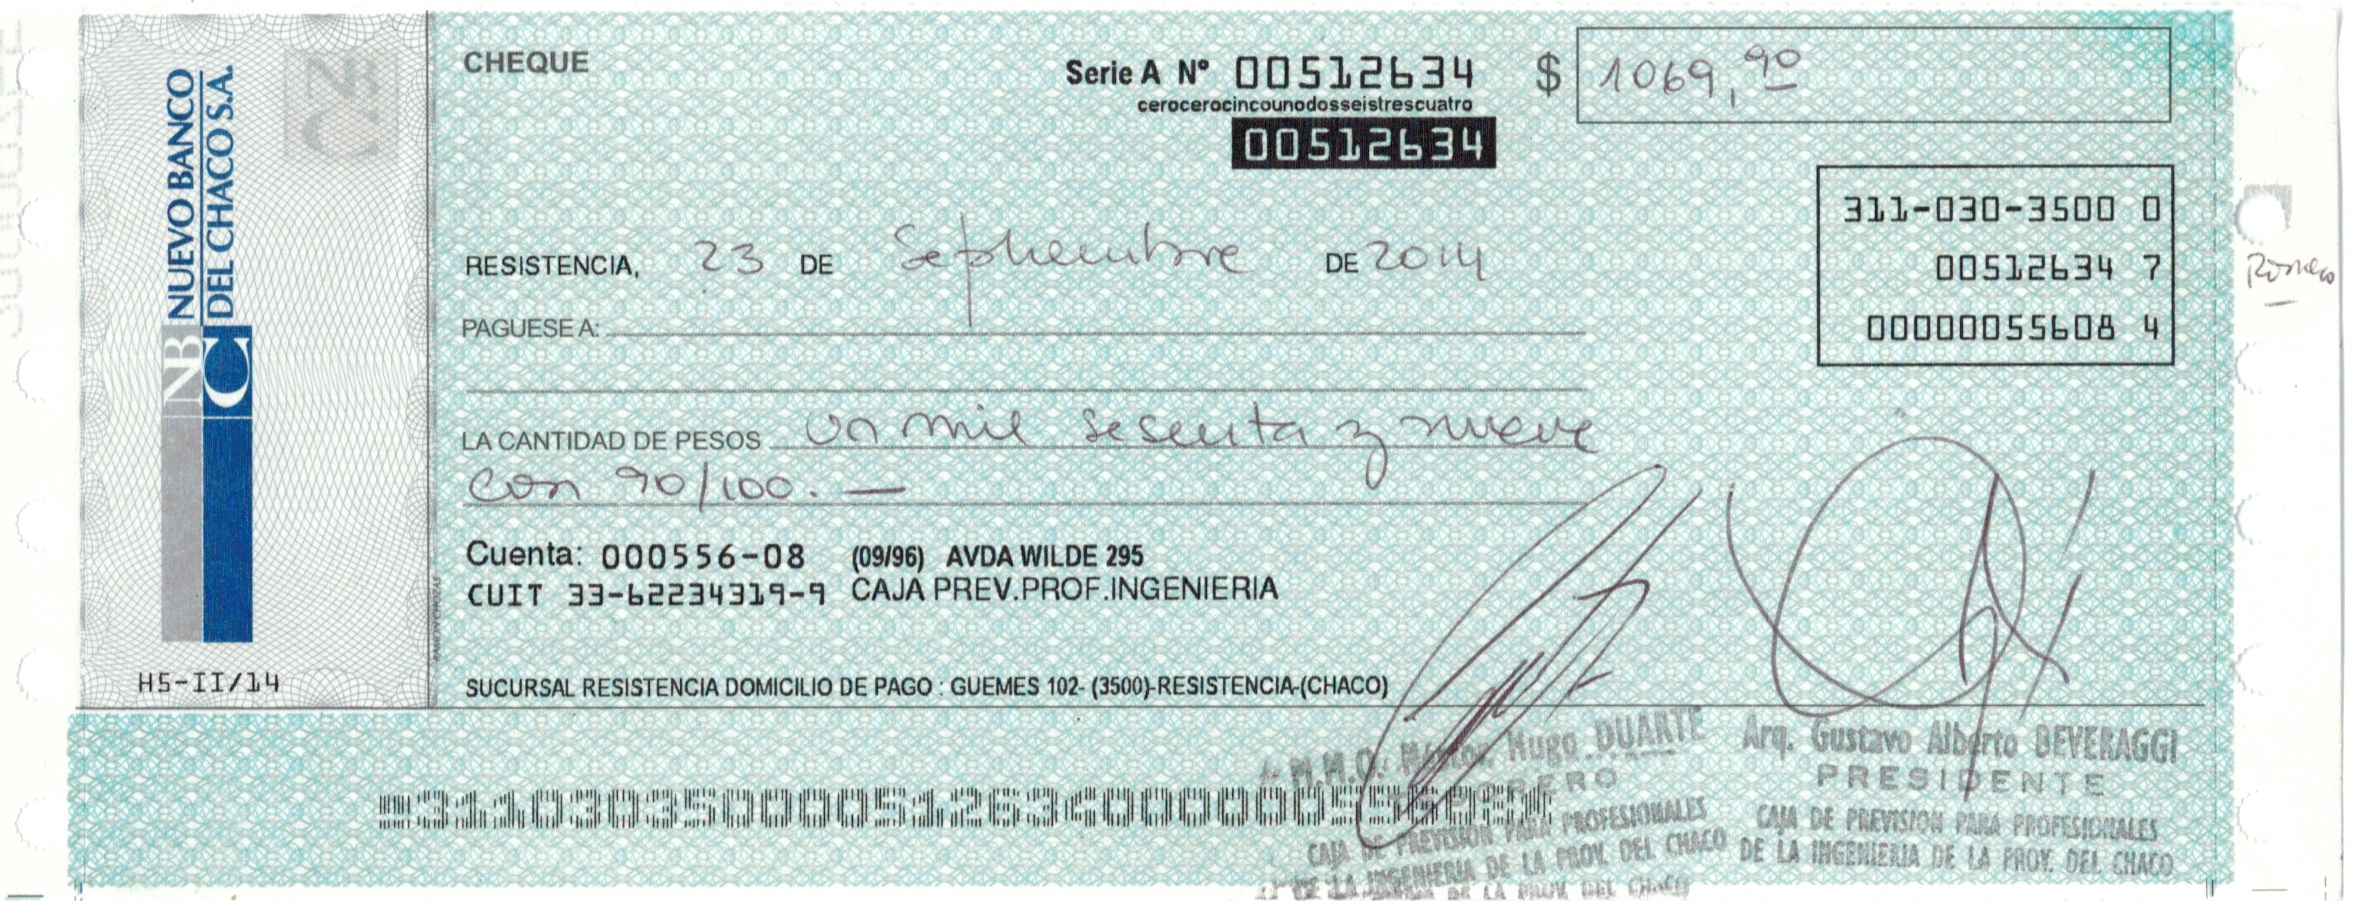 NUEVO BANCO
DEL CHACO S.A.
NB
C
H5-II/14
CHEQUE
Serie A Nº 00512634
cerocerocincounodosseistrescuatro
00512634
$ 1069,90
311-030-3500 0
00512634 7
00000055608 4
RESISTENCIA, 23 DE Septiembre DE 2014
PAGUESE A:
LA CANTIDAD DE PESOS un mil sesenta y nueve
con 90/100.—
Cuenta: 000556-08 (09/96) AVDA WILDE 295
CUIT 33-62234319-9 CAJA PREV.PROF.INGENIERIA
SUCURSAL RESISTENCIA DOMICILIO DE PAGO : GUEMES 102- (3500)-RESISTENCIA-(CHACO)
M.M.O. Hugo DUARTE
CAJA DE PREVISION PARA PROFESIONALES
DE LA INGENIERIA DE LA PROV. DEL CHACO
Arq. Gustavo Alberto BEVERAGGI
PRESIDENTE
CAJA DE PREVISION PARA PROFESIONALES
DE LA INGENIERIA DE LA PROV. DEL CHACO